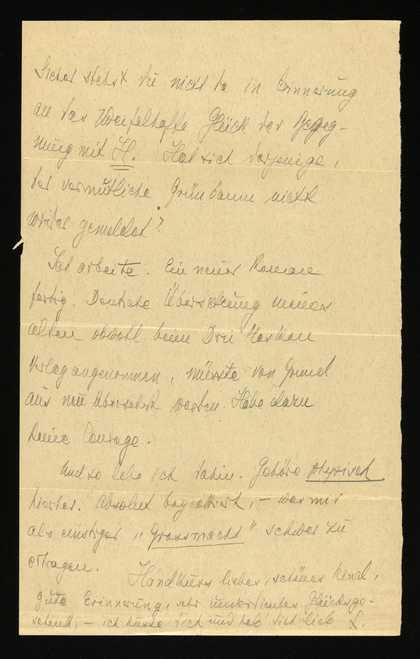 Sicher stehst du nicht da in Erinnerung
an das zweifelhafte Glück der Begeg-
nung mit H. Hat sich derjenige,
der vermutliche Grünbaum nicht
weiter gemeldet?
Ich arbeite. Ein neuer Roman
fertig. Deutsche Übersetzung meines
alten obwohl beim Drei Masken
Verlag angenommen, müsste von Grund
aus neu übersetzt werden. Habe dazu
keine Courage.
Und so lebe ich dahin. Gehöre physisch
hierher. Absolut boycottiert, – was mir
als einstiger „Grossmacht" schwer zu
ertragen.
Handkuss liebes, schönes Kind,
gute Erinnerung, sehr Glücksge-
schenk, – ich küsse dich und hab dich lieb L.